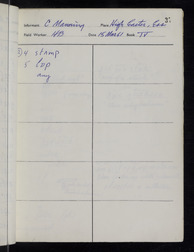 2.
Informant C Manning Place High Easter, Ess
Field Worker HB Date 15 Mar 61 Book IV
3) 4 stamp
5 top
any